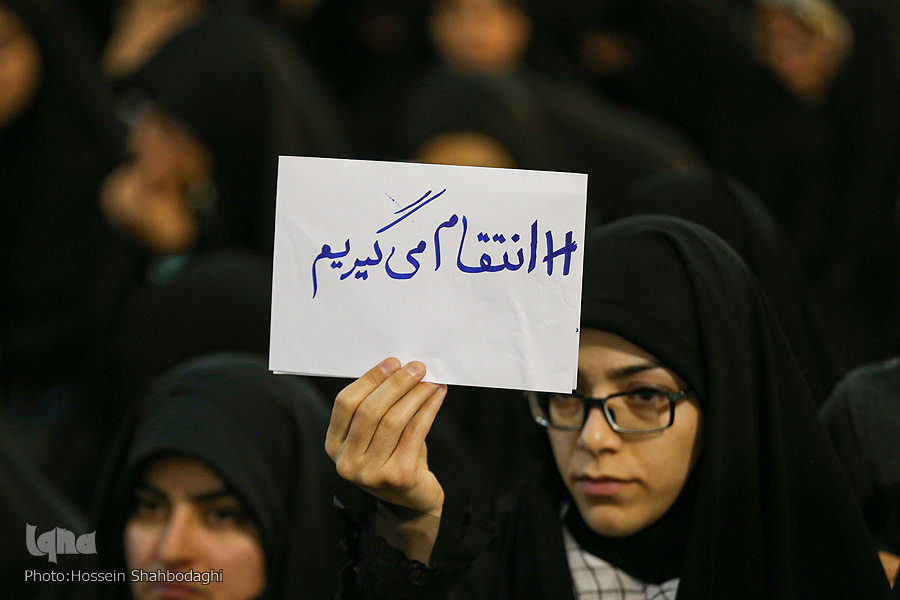 #انتقام می گیریم
Iqna
Photo:Hossein Shahbodaghi